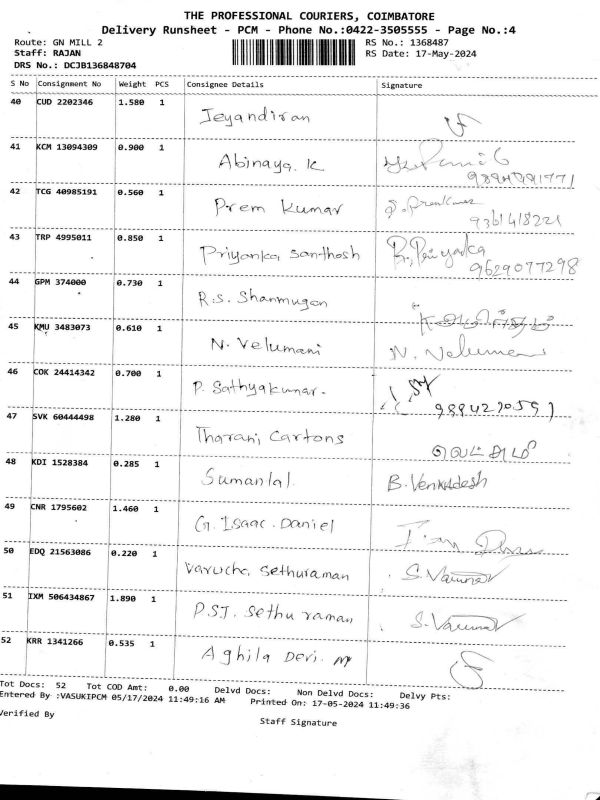 THE PROFESSIONAL COURIERS, COIMBATORE
Delivery Runsheet - PCM - Phone No.:0422-3505555 - Page No.:4
Route: GN MILL 2 RS No.: 1368487
Staff: RAJAN RS Date: 17-May-2024
DRS No.: DCJB136848704
S No Consignment No Weight PCS Consignee Details Signature
40 CUD 2202346 1.580 1 Jeyandiran
41 KCM 13094309 0.900 1 Abinaya. K
42 TCG 40985191 0.560 1 Prem Kumar
9361418221
43 TRP 4995011 0.850 1 Priyanka Santhosh R. Priyanka
9629077298
44 GPM 374000 0.730 1 R.S. Shanmugan
45 KMU 3483073 0.610 1 N. Velumani N. Velumani
46 COK 24414342 0.700 1 P. Sathyakumar.
47 SVK 60444498 1.280 1 Tharani Cartons
48 KDI 1528384 0.285 1 Sumanlal. B. Venkadesh
49 CNR 1795602 1.460 1 G. Isaac. Daniel
50 EDQ 21563086 0.220 1 Varucha Sethuraman
51 IXM 506434867 1.890 1 P.ST. Sethu raman
52 KRR 1341266 0.535 1 Aghila Devi.
Tot Docs: 52 Tot COD Amt: 0.00 Delvd Docs: Non Delvd Docs: Delvy Pts:
Entered By :VASUKIPCM 05/17/2024 11:49:16 AM Printed On: 17-05-2024 11:49:36
Verified By
Staff Signature